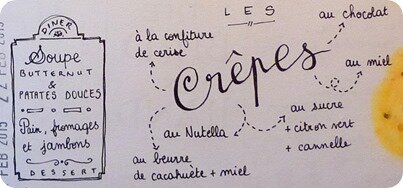 FEB 2015 2 2 FEB 2015
DINER
Soupe
BUTTERNUT
&
PATATES DOUCES
Pain, fromages
et jambons
DESSERT
LES
Crêpes
à la confiture
de cerise
au chocolat
au miel
au sucre
+ citron vert
+ cannelle
au Nutella
au beurre
de cacahuète + miel